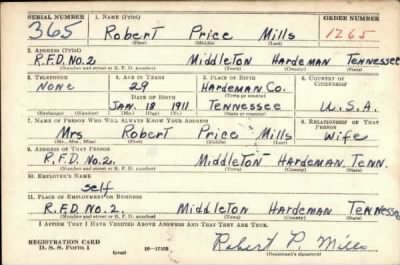 SERIAL NUMBER 1. NAME (Print) ORDER NUMBER
365 Robert Price Mills 1265
(First) (Middle) (Last)
2. ADDRESS (Print)
R.F.D. No. 2. Middleton Hardeman Tennessee
(Number and street or R. F. D. number) (Town) (County) (State)
3. TELEPHONE 4. AGE IN YEARS 5. PLACE OF BIRTH 6. COUNTRY OF CITIZENSHIP
None 29 Hardeman Co.
DATE OF BIRTH (Town or county)
Jan. 18 1911 Tennessee U.S.A.
(Mo.) (Day) (Yr.) (State or country)
7. NAME OF PERSON WHO WILL ALWAYS KNOW YOUR ADDRESS 8. RELATIONSHIP OF THAT PERSON
Mrs Robert Price Mills Wife
(Mr., Mrs., Miss) (First) (Middle) (Last)
9. ADDRESS OF THAT PERSON
R.F.D. No. 2. Middleton Hardeman, Tenn.
(Number and street or R. F. D. number) (Town) (County) (State)
10. EMPLOYER'S NAME
Self
11. PLACE OF EMPLOYMENT OR BUSINESS
R.F.D. No. 2 Middleton Hardeman Tennessee
(Number and street or R. F. D. number) (Town) (County) (State)
I AFFIRM THAT I HAVE VERIFIED ABOVE ANSWERS AND THAT THEY ARE TRUE.
REGISTRATION CARD
D. S. S. Form 1 (over) 16—17105 Robert P. Mills
(Registrant's signature)